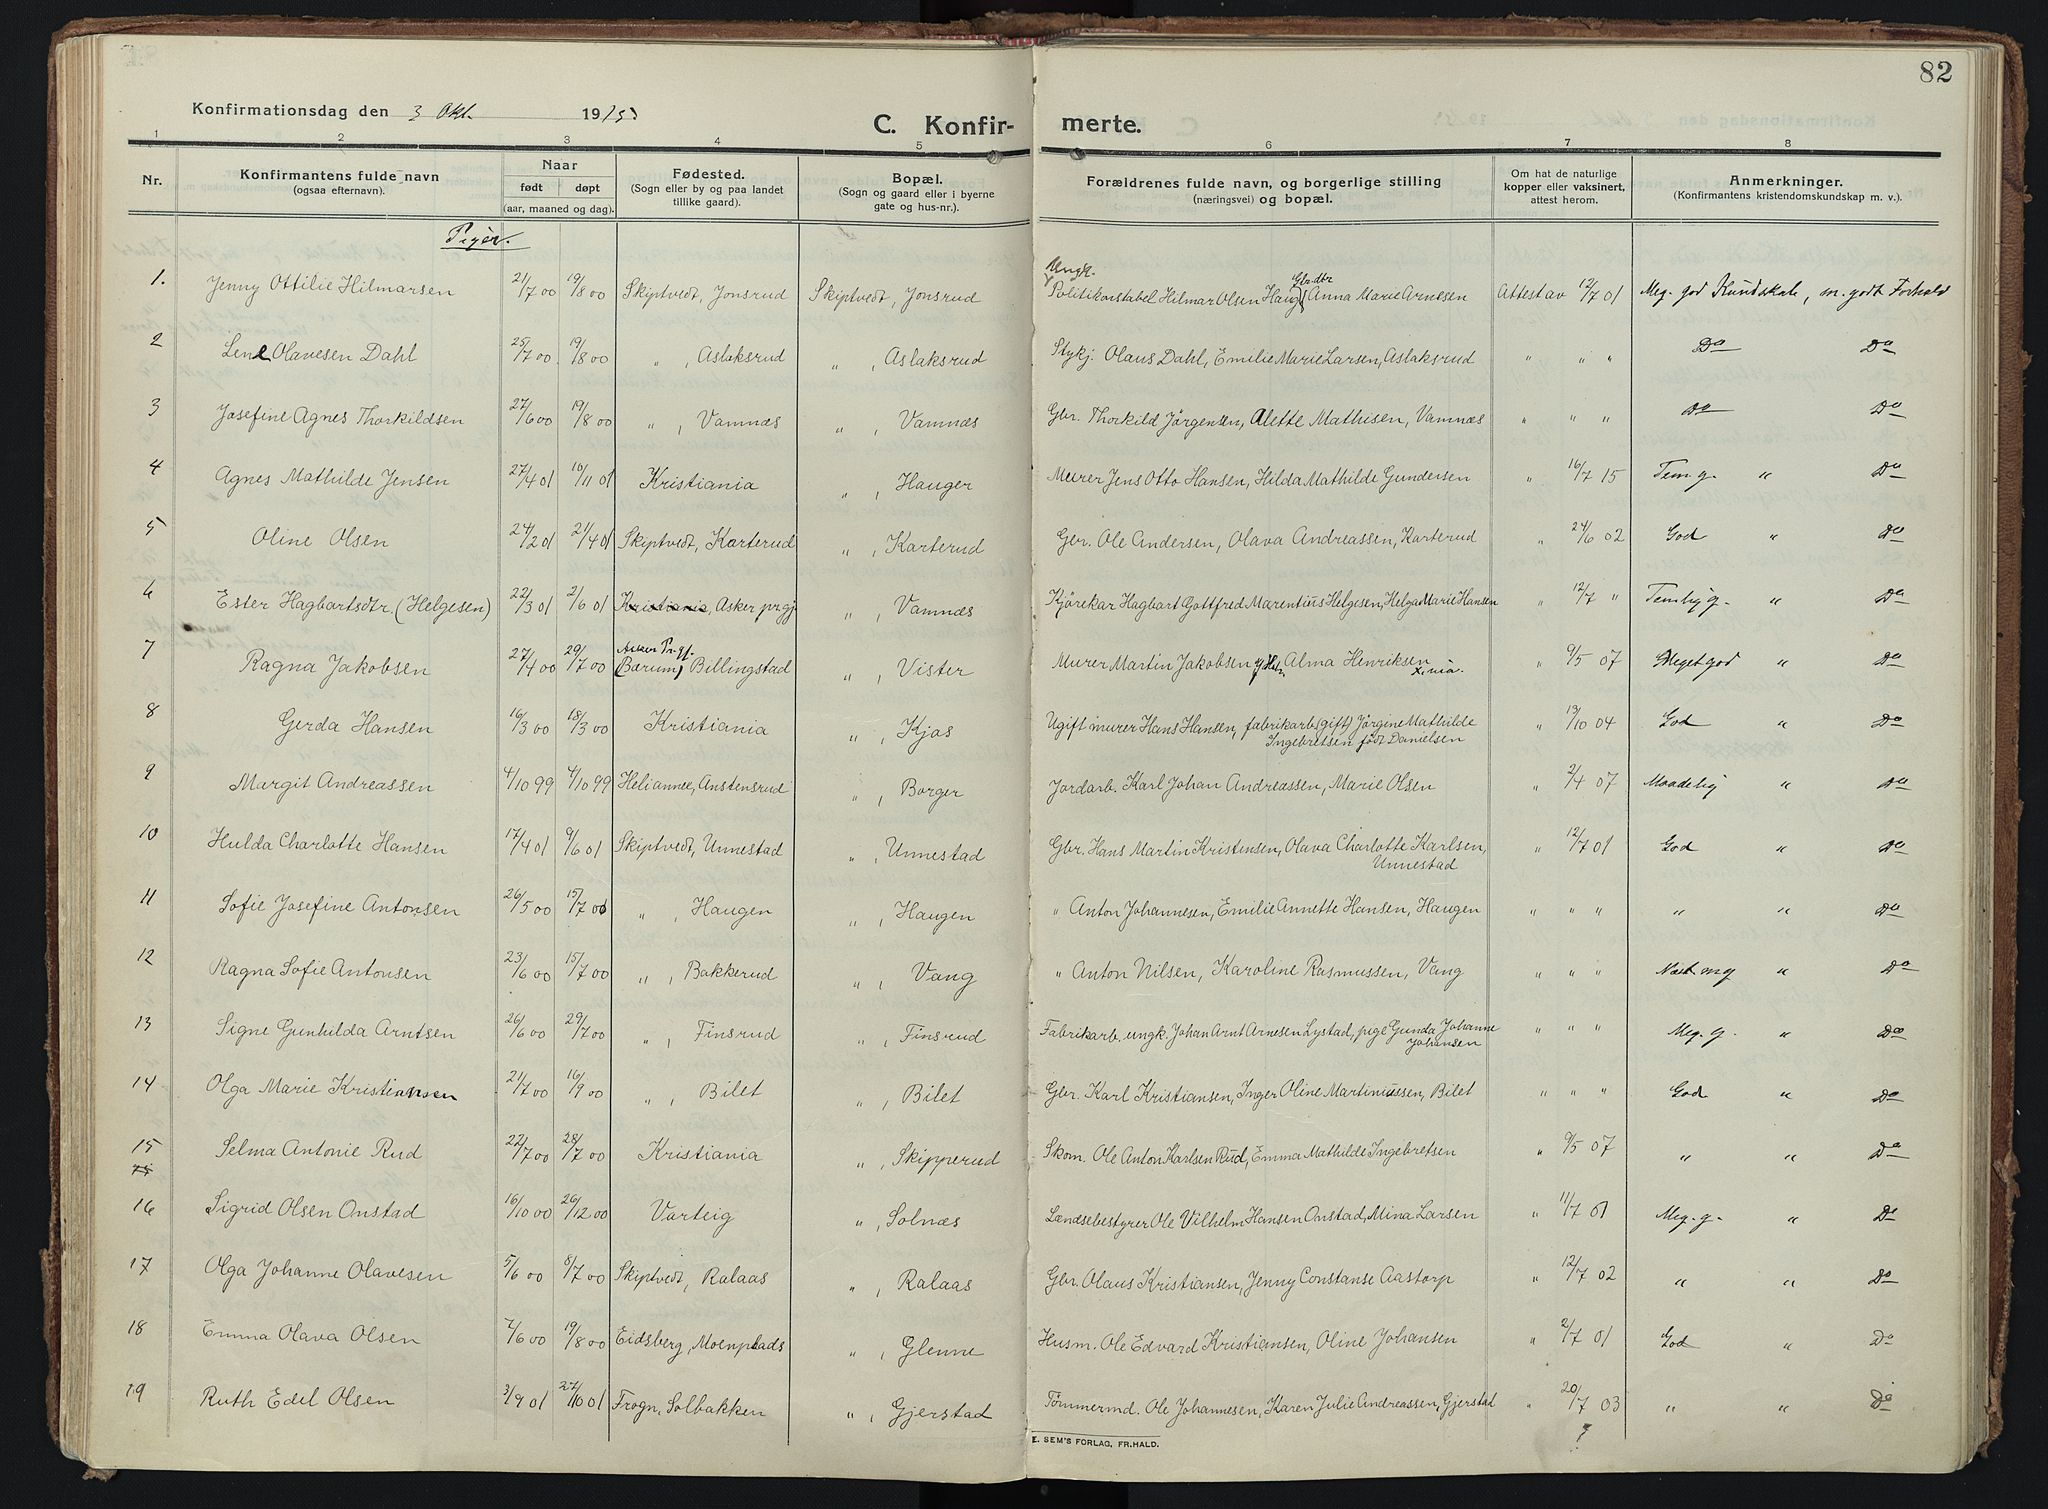 82
Konfirmationsdag den 3 Okt. 1915
C. Konfir- merte.
1 2 3 4 5 6 7 8
Nr. Konfirmantens fulde navn (ogsaa efternavn). Naar født døpt (aar, maaned og dag). Fødested. (Sogn eller by og paa landet tillike gaard). Bopæl. (Sogn og gaard eller i byerne gate og hus-nr.). Forældrenes fulde navn, og borgerlige stilling (næringsvei) og bopæl. Om hat de naturlige kopper eller vaksinert, attest herom. Anmerkninger. (Konfirmantens kristendomskundskap m. v.).
Piger.
1. Jenny Ottilie Hilmarsen 21/7 00 19/8 00 Skiptvedt, Jonsrud Skiptvedt, Jonsrud Ungk. Politikonstabel Hilmar Olsen Haug, Gbrdtr Anna Marie Arnesen Attest av 12/7 01 Meg. god Kundskab, m. godt Forhold
2 Lene Olavesen Dahl 25/7 00 19/8 00 " , Aslaksrud " , Aslaksrud Stykj. Olaus Dahl, Emilie Marie Larsen, Aslaksrud " " " Do Do
3 Josefine Agnes Thorkildsen 27/6 00 19/8 00 " , Vamnæs " , Vamnæs Gbr. Thorkild Jörgensen, Alette Mathisen, Vamnæs " " " Do Do
4 Agnes Mathilde Jensen 27/4 01 10/11 01 Kristiania " , Hauger Murer Jens Otto Hansen, Hilda Mathilde Gundersen " 16/7 15 Tem g. " Do
5 Oline Olsen 24/2 01 21/4 01 Skiptvedt, Karterud " , Karterud Gbr. Ole Andersen, Olava Andreassen, Karterud " 24/6 02 God " Do
6 Ester Hagbartsdtr. (Helgesen) 22/3 01 2/6 01 Kristiania, Asker prgj " , Vamnæs Kjörekar Hagbart Gottfred Marentius Helgesen, Helga Marie Hansen " 12/7 " Temlig g. " Do
7 Ragna Jakobsen 27/4 00 29/7 00 Asker Pr.gj. (Bærum) Billingstad " , Vister Murer Martin Jakobsen Alma Henriksen X.nia. " 9/5 07 Meget god " Do
8 Gerda Hansen 16/3 00 18/3 00 Kristiania " , Kjos Ugift murer Hans Hansen, fabrikarb (gift) Jörgine Mathilde Ingebretsen født Danielsen " 13/10 04 God " Do
9 Margit Andreassen 4/10 99 4/10 99 Heliannee, Anstensrud " , Borger Jordarb. Karl Johan Andreassen, Marie Olsen " 2/4 07 Maadelig " Do
10 Hulda Charlotte Hansen 17/4 01 9/6 01 Skiptvedt, Unnestad " , Unnestad Gbr. Hans Martin Kristensen, Olava Charlotte Karlsen, Unnestad " 12/7 01 God " Do
11 Sofie Josefine Antonsen 26/5 00 15/7 00 " , Haugen " , Haugen " Anton Johannesen, Emilie Annette Hansen, Haugen " " " " " Do
12 Ragna Sofie Antonsen 23/6 00 15/7 00 " , Bakkerud " , Vang " Anton Nilsen, Karoline Rasmussen, Vang " " " Næst mg " Do
13 Signe Gunhilda Arntsen 26/6 00 29/7 00 " , Finsrud " , Finsrud Fabrikarb. ungk. Johan Arnt Arnesen Lystad, pige Gunda Johanne Johansen " " " Meg. g. " Do
14 Olga Marie Kristiansen 21/7 00 16/9 00 " , Bilet " , Bilet Gbr. Karl Kristiansen, Inger Oline Martiniussen, Bilet " " " God " Do
15 Selma Antonie Rud 22/7 00 28/7 00 Kristiania " , Skipperud Skom. Ole Anton Karlsen Rud, Emma Mathilde Ingebretsen " 9/5 07 " " Do
16 Sigrid Olsen Onstad 16/10 00 26/12 00 Varteig " , Solnæs Lændsebestyrer Ole Vilhelm Hansen Onstad, Mina Larsen " 11/7 01 Meg. g. " Do
17 Olga Johanne Olavesen 5/6 00 8/7 00 Skiptvedt, Ralaas " , Ralaas Gbr. Olaus Kristiansen, Jenny Constanse Aastorp " 12/7 02 " " Do
18 Emma Olava Olsen 7/6 00 19/8 00 Eidsberg, Moenplads " , Glenne Husm. Ole Edvard Kristiansen, Oline Johansen " 2/7 01 God " Do
19 Ruth Edel Olsen 3/9 01 27/10 01 Frogn, Solbakken " , Gjerstad Tömmermd. Ole Johannesen, Karen Julie Andreassen, Gjerstad " 20/7 03 " " Do
?
E. SEM'S FORLAG, FR.HALD.